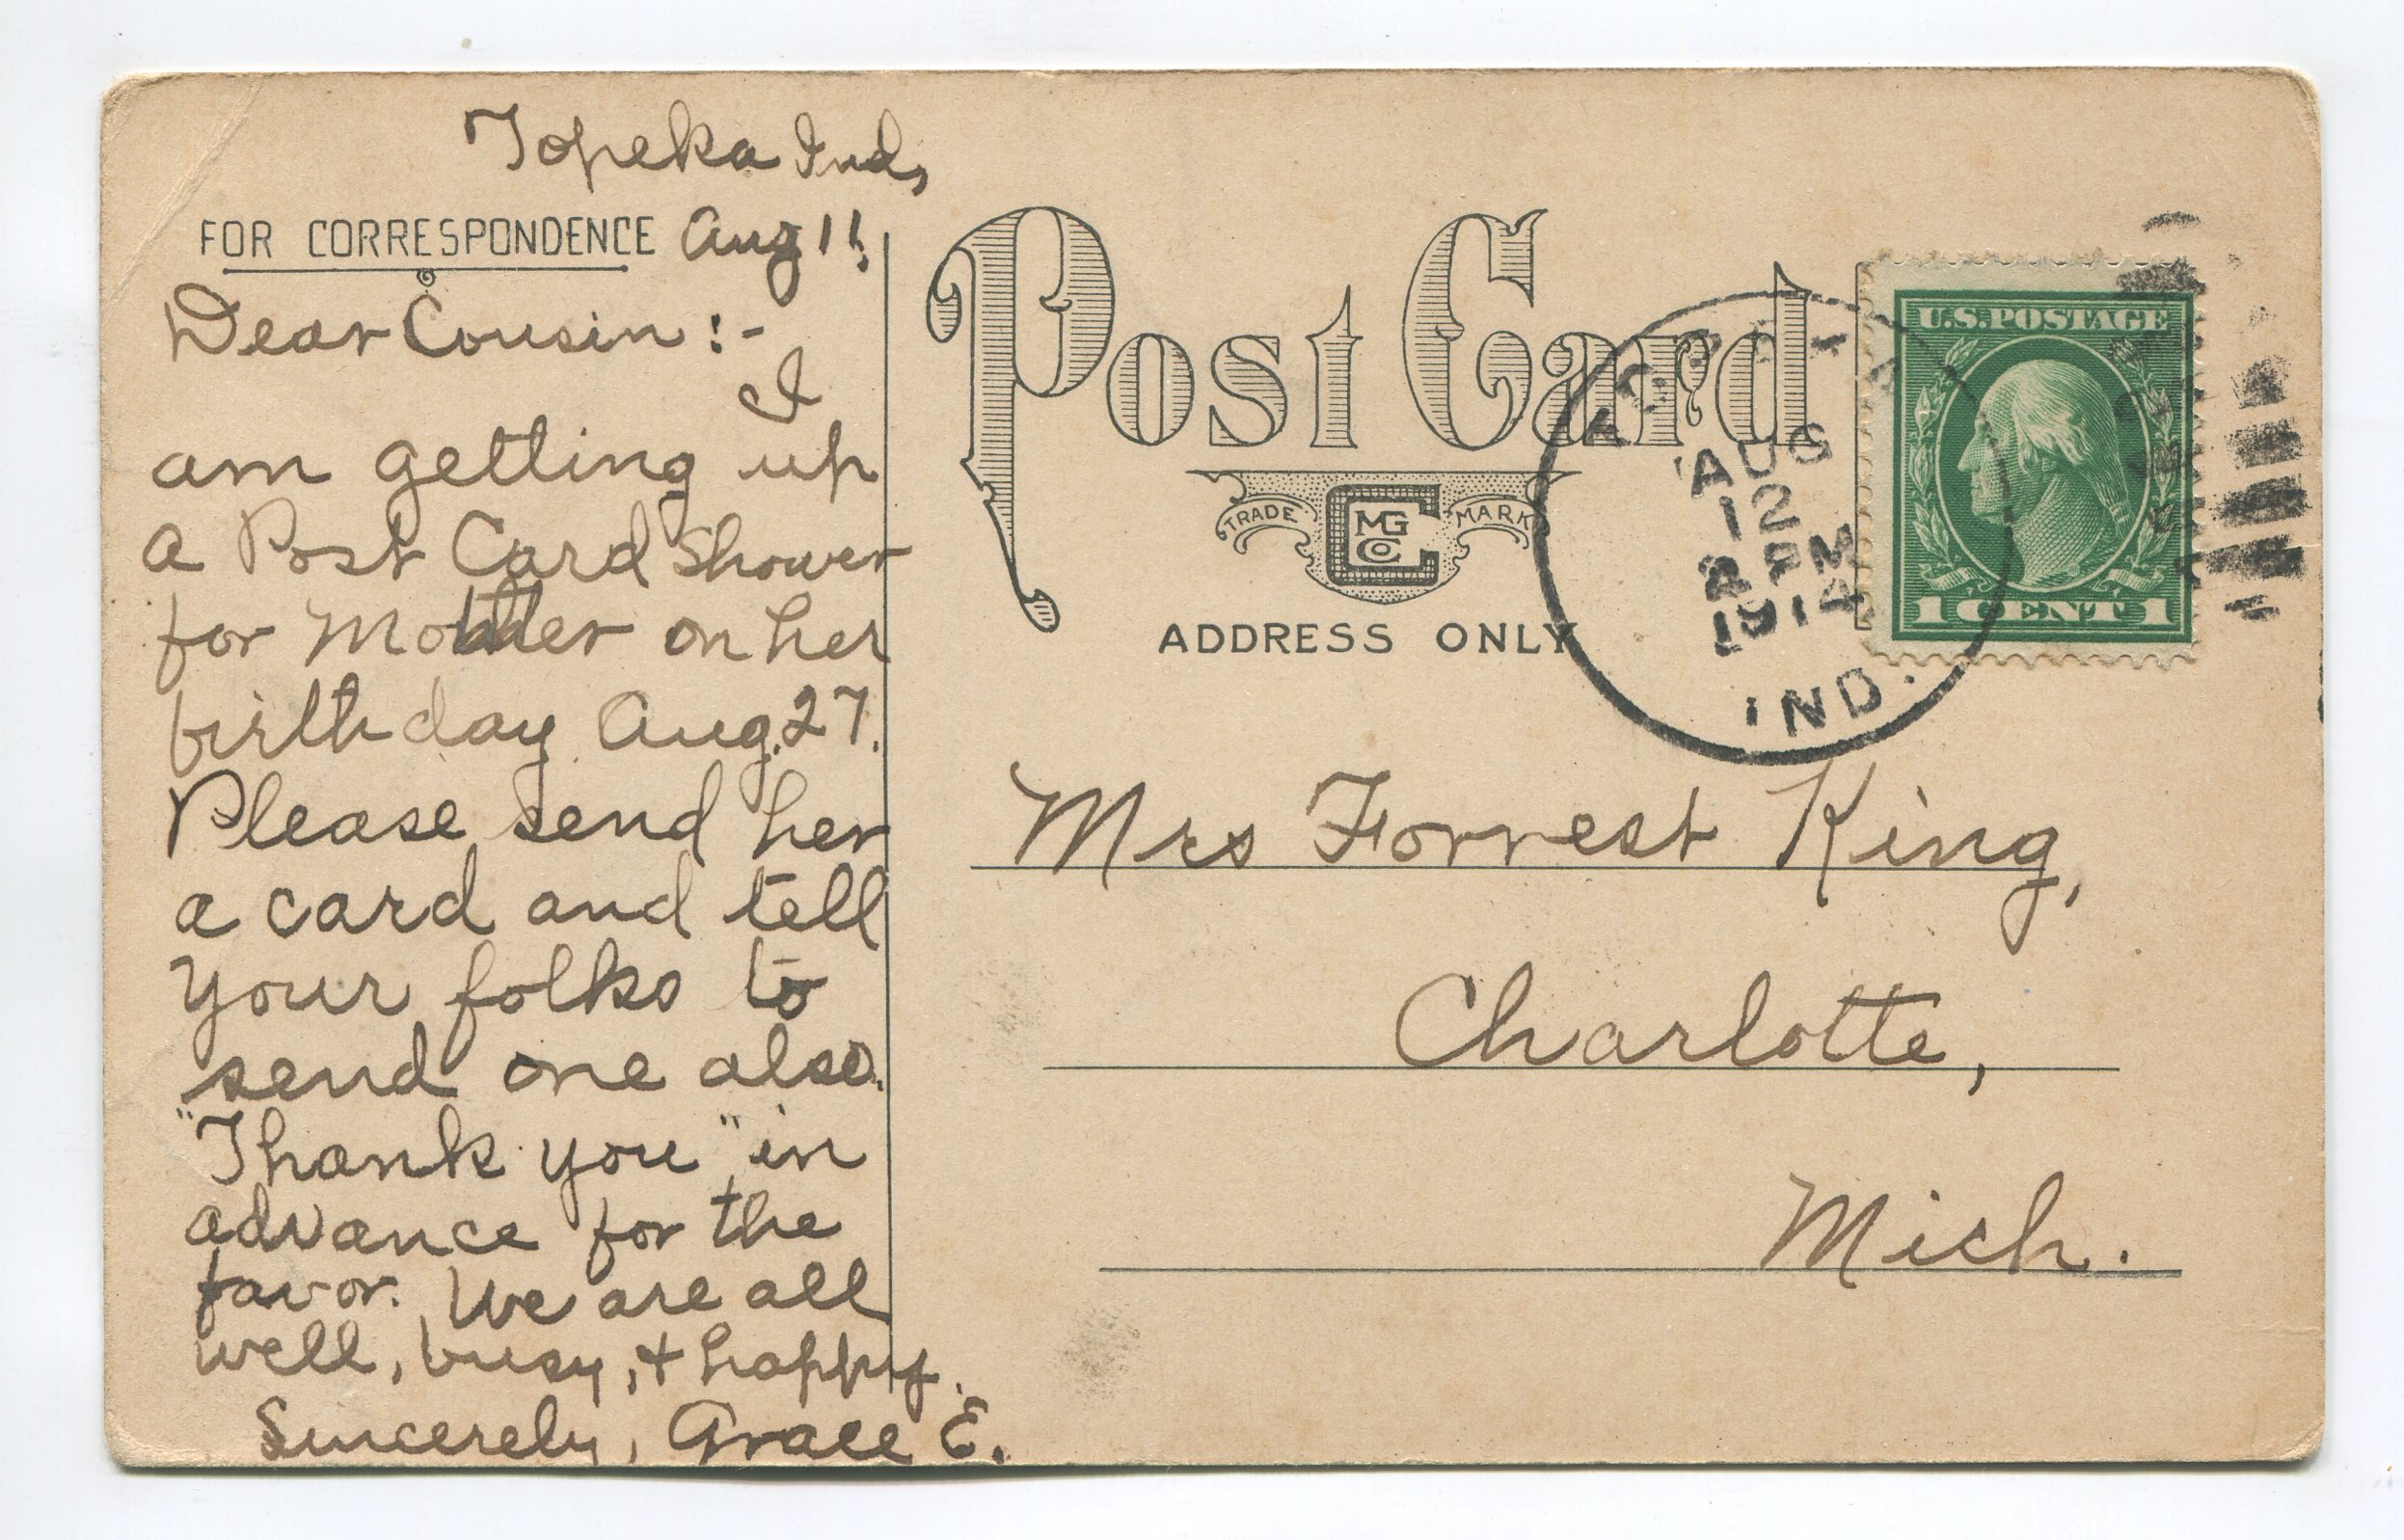 Topeka Ind,
FOR CORRESPONDENCE Aug 11.
Dear Cousin :-
I
am getting up
a Post Card Shower
for Mother on her
birthday Aug. 27.
Please send her
a card and tell
your folks to
send one also.
"Thank you" in
advance for the
favor. We are all
well, busy, + happy.
Sincerely, Grace E.
Post Card
TRADE MARK
C MG CO
ADDRESS ONLY
AUG
12
PM
1914
IND.
U.S. POSTAGE
1 CENT 1
Mrs Forrest King,
Charlotte,
Mich.